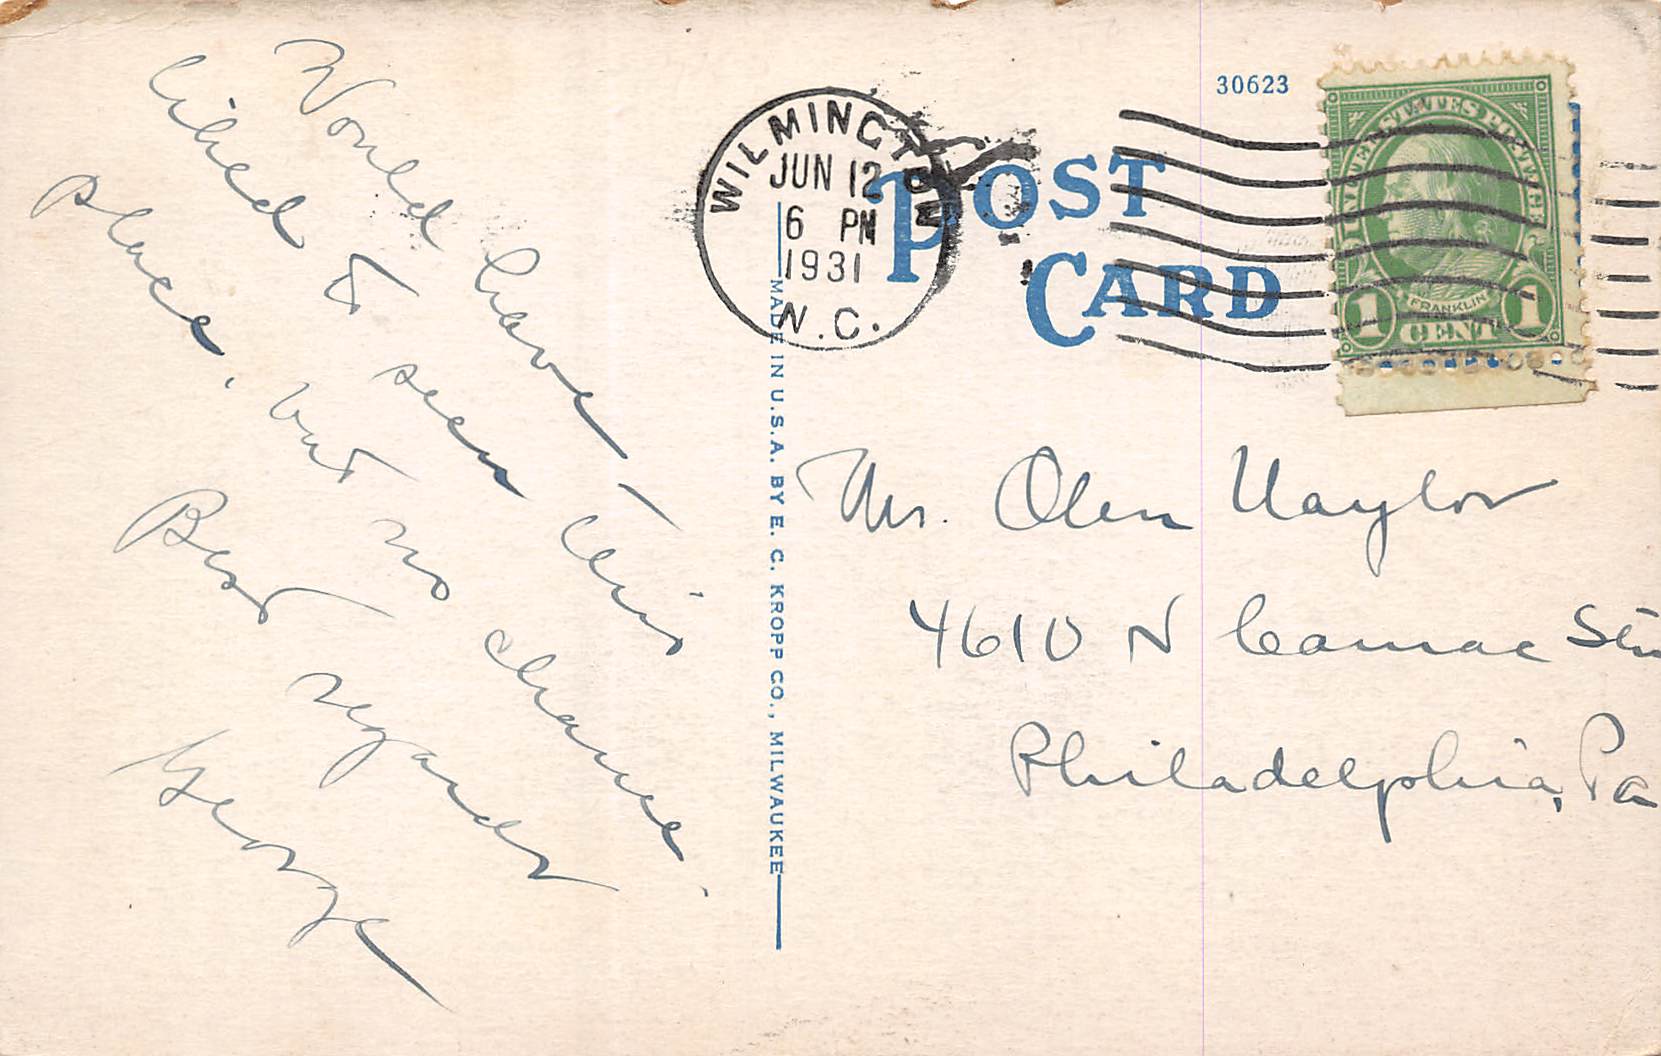 Would have
liked to seen this
place, but no chance.
Best regards
George
WILMINGTON
JUN 12
6 PM
1931
N.C.
30623
POST
CARD
UNITED STATES POSTAGE
FRANKLIN
1 CENT 1
MADE IN U.S.A. BY E. C. KROPP CO., MILWAUKEE
Mr. Olen Naylor
4610 N Camac
Philadelphia, Pa